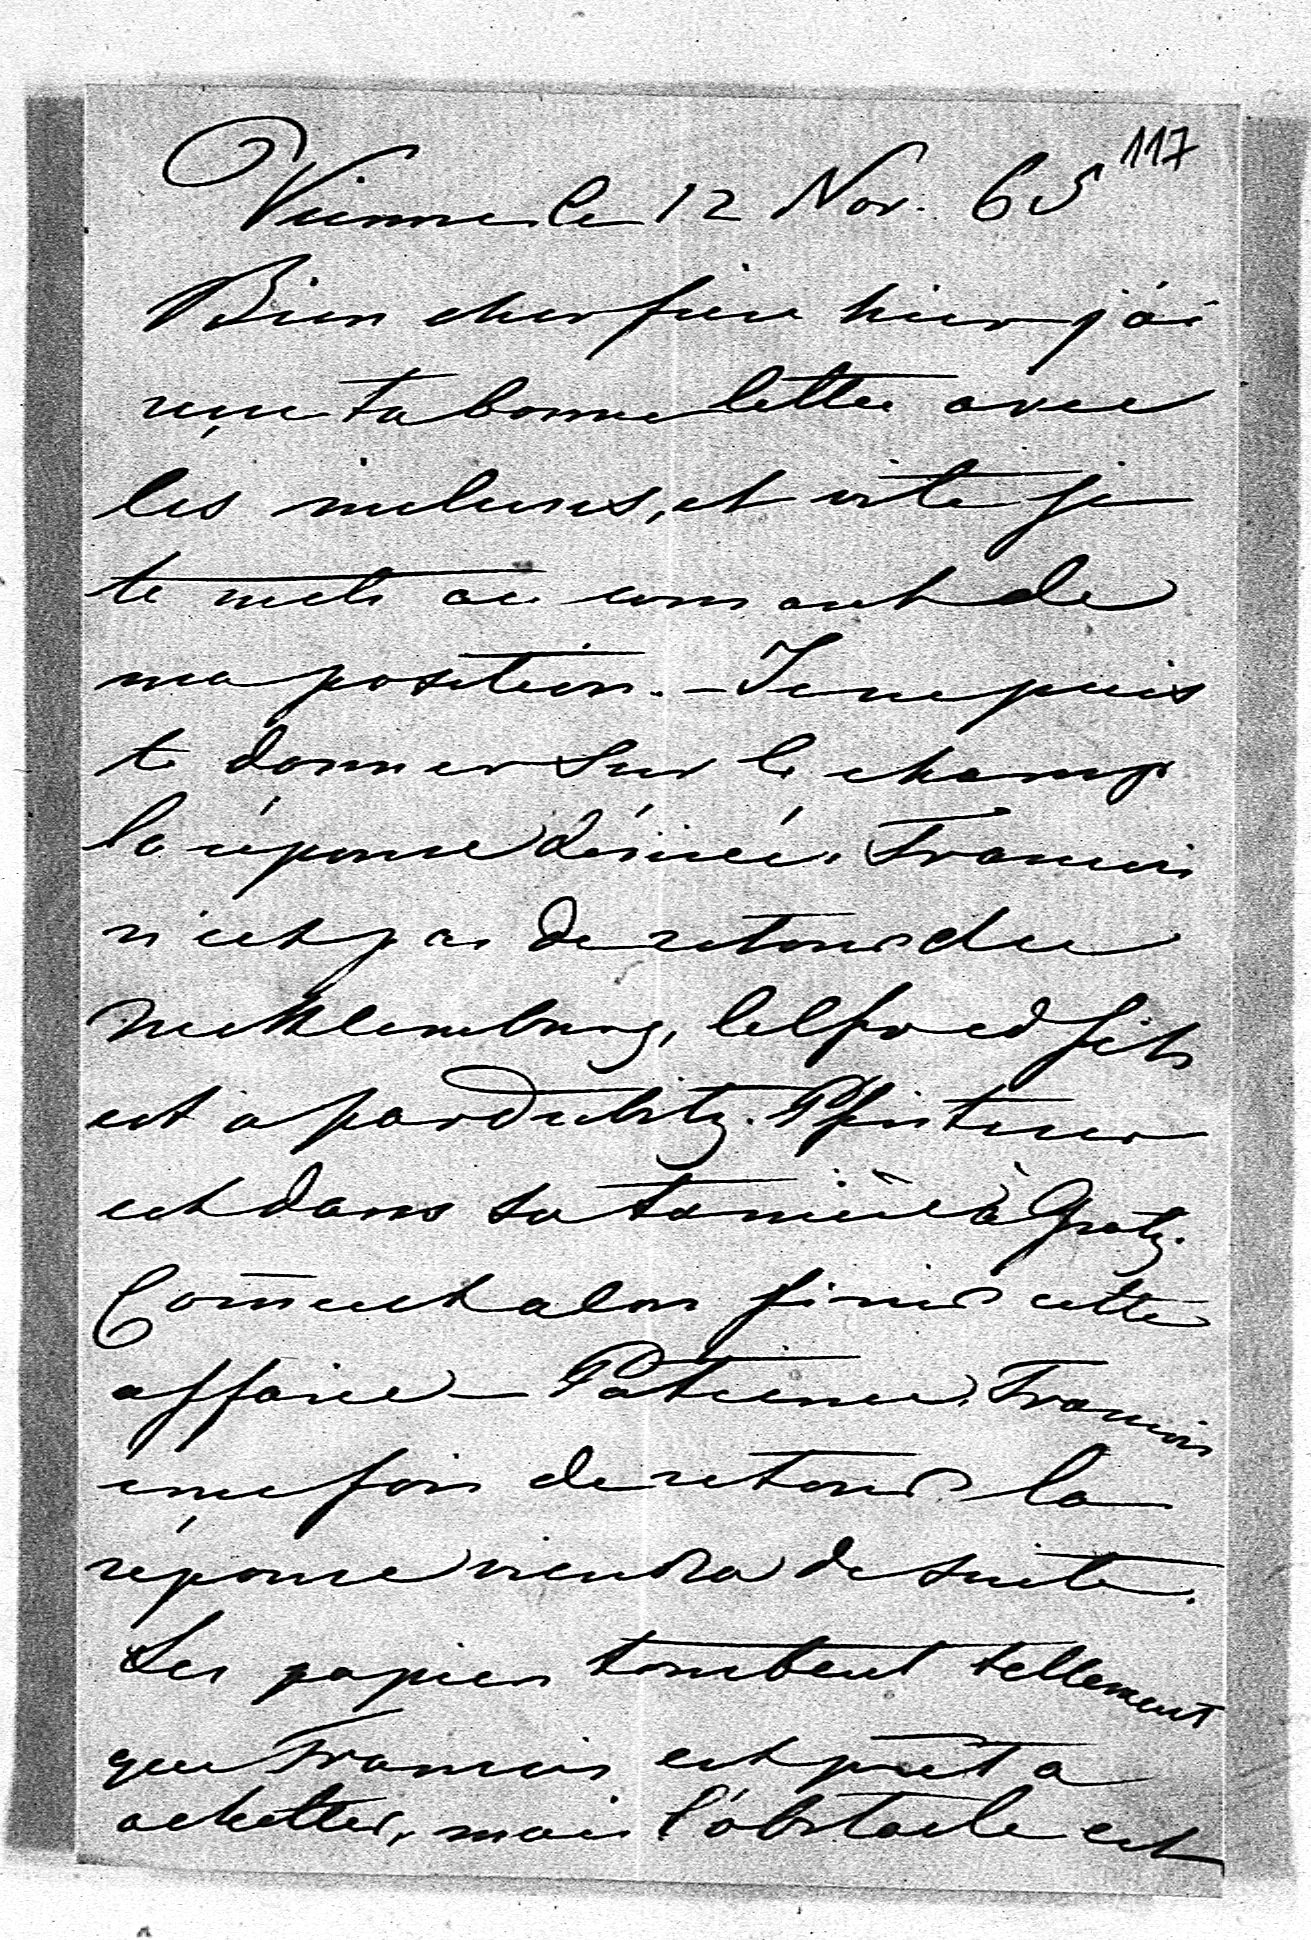 117
Vienne le 12 Nov. 65
Bien cher frère hier j'ai
reçu ta bonne lettre avec
les incluses, et vite je
te mets au courant de
ma position. – Je ne puis
te donner sur le champ
la réponse désirée. Francois
n'est pas de retour du
Mecklemburg, fils
est a pardubitz. Pfisterer
est dans sa tanière à Gratz.
Com̄ent alors finir cette
affaire – Patience, Francois
une fois de retour la
réponse viendra de suite.
Les papiers tombent tellement
que Francois est prêt a
achetter, mais l'obstacle est